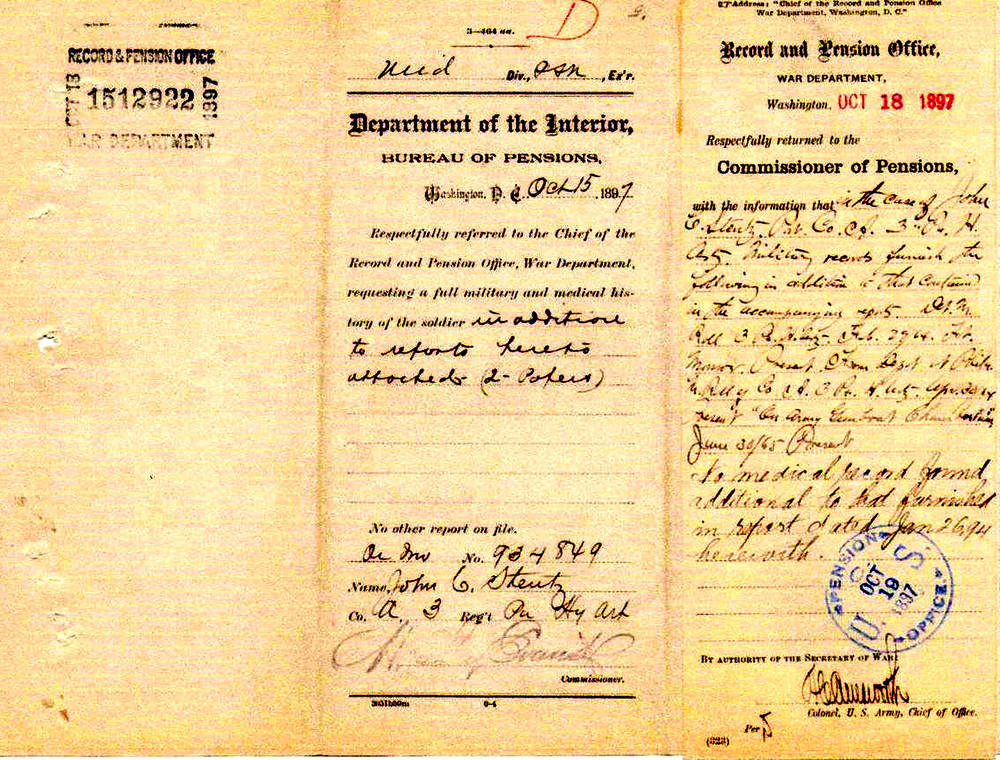 RECORD & PENSION OFFICE
OCT 18
1512922
1897
WAR DEPARTMENT
D
3—464 aa.
Div., Ex'r.
Department of the Interior,
BUREAU OF PENSIONS,
Washington, D. C. Oct 15, 1897
Respectfully referred to the Chief of the
Record and Pension Office, War Department,
requesting a full military and medical his-
tory of the soldier in addition
to reports hereto
attached (2- Papers)
No other report on file.
No. 934849
Name, John C. Stentz
Co. A. 3 Reg't Pa Hy Art
Commissioner.
0-4
Address: "Chief of the Record and Pension Office
War Department, Washington, D. C."
Record and Pension Office,
WAR DEPARTMENT,
Washington, OCT 18 1897
Respectfully returned to the
Commissioner of Pensions,
with the information that in the case of John
C. Stentz Co. A. 3" Pa. H.
Arty. Military records furnish the
following in addition to that contained
in the accompanying report.
Roll 3 Feb. 29/64. Ft.
Monroe Present. From Depot at Phila.
Roll of Co. A. 3 Pa. H. Arty. Apr. 30/64
Present "On Army Gunboat
June 30/65 Present
No medical record found
additional to that furnished
in report dated Jan 26, 94
herewith.
U. S. PENSION OFFICE
OCT
19
1897
BY AUTHORITY OF THE SECRETARY OF WAR:
F C Ainsworth
Colonel, U. S. Army, Chief of Office.
Per
(323)